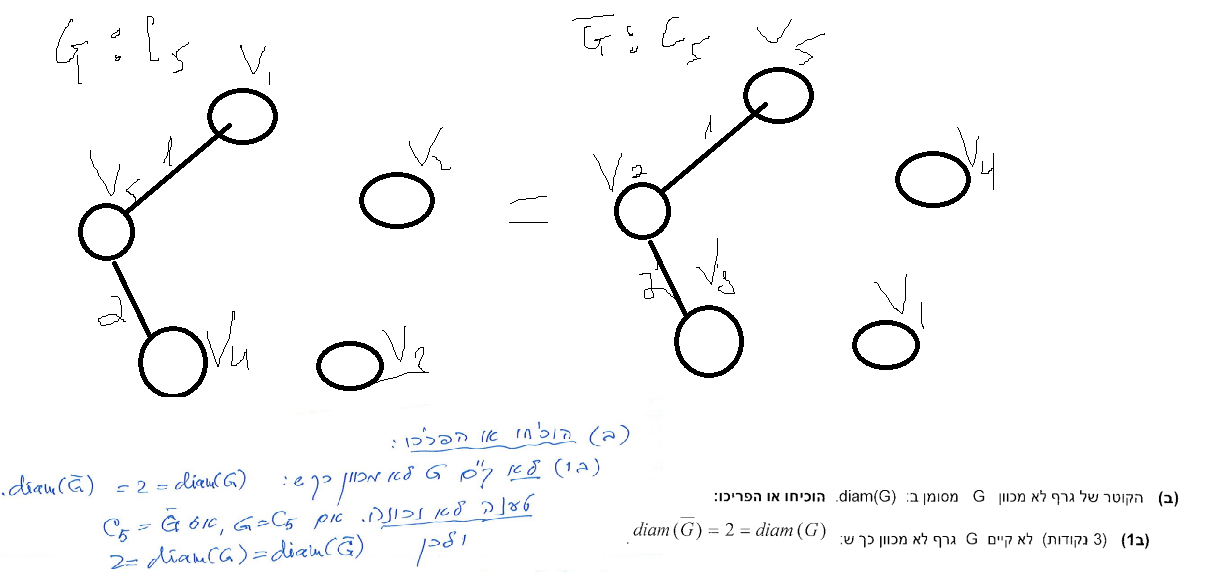 G : C5
V1
V2
V5
1
2
V4
V3
=
G̅ : C5
V5
V4
V2
1
2
V3
V1
(ב) הוכיחו או הפריכו:
(ב1) לא קיים G לא מכוון כך ש: diam(G̅) = 2 = diam(G).
טענה לא נכונה. אם G=C5, אז C5 = G̅
ולכן 2 = diam(G) = diam(G̅)
(ב) הקוטר של גרף לא מכוון G מסומן ב: diam(G). הוכיחו או הפריכו:
(ב1) (3 נקודות) לא קיים G גרף לא מכוון כך ש: diam(G̅) = 2 = diam(G).